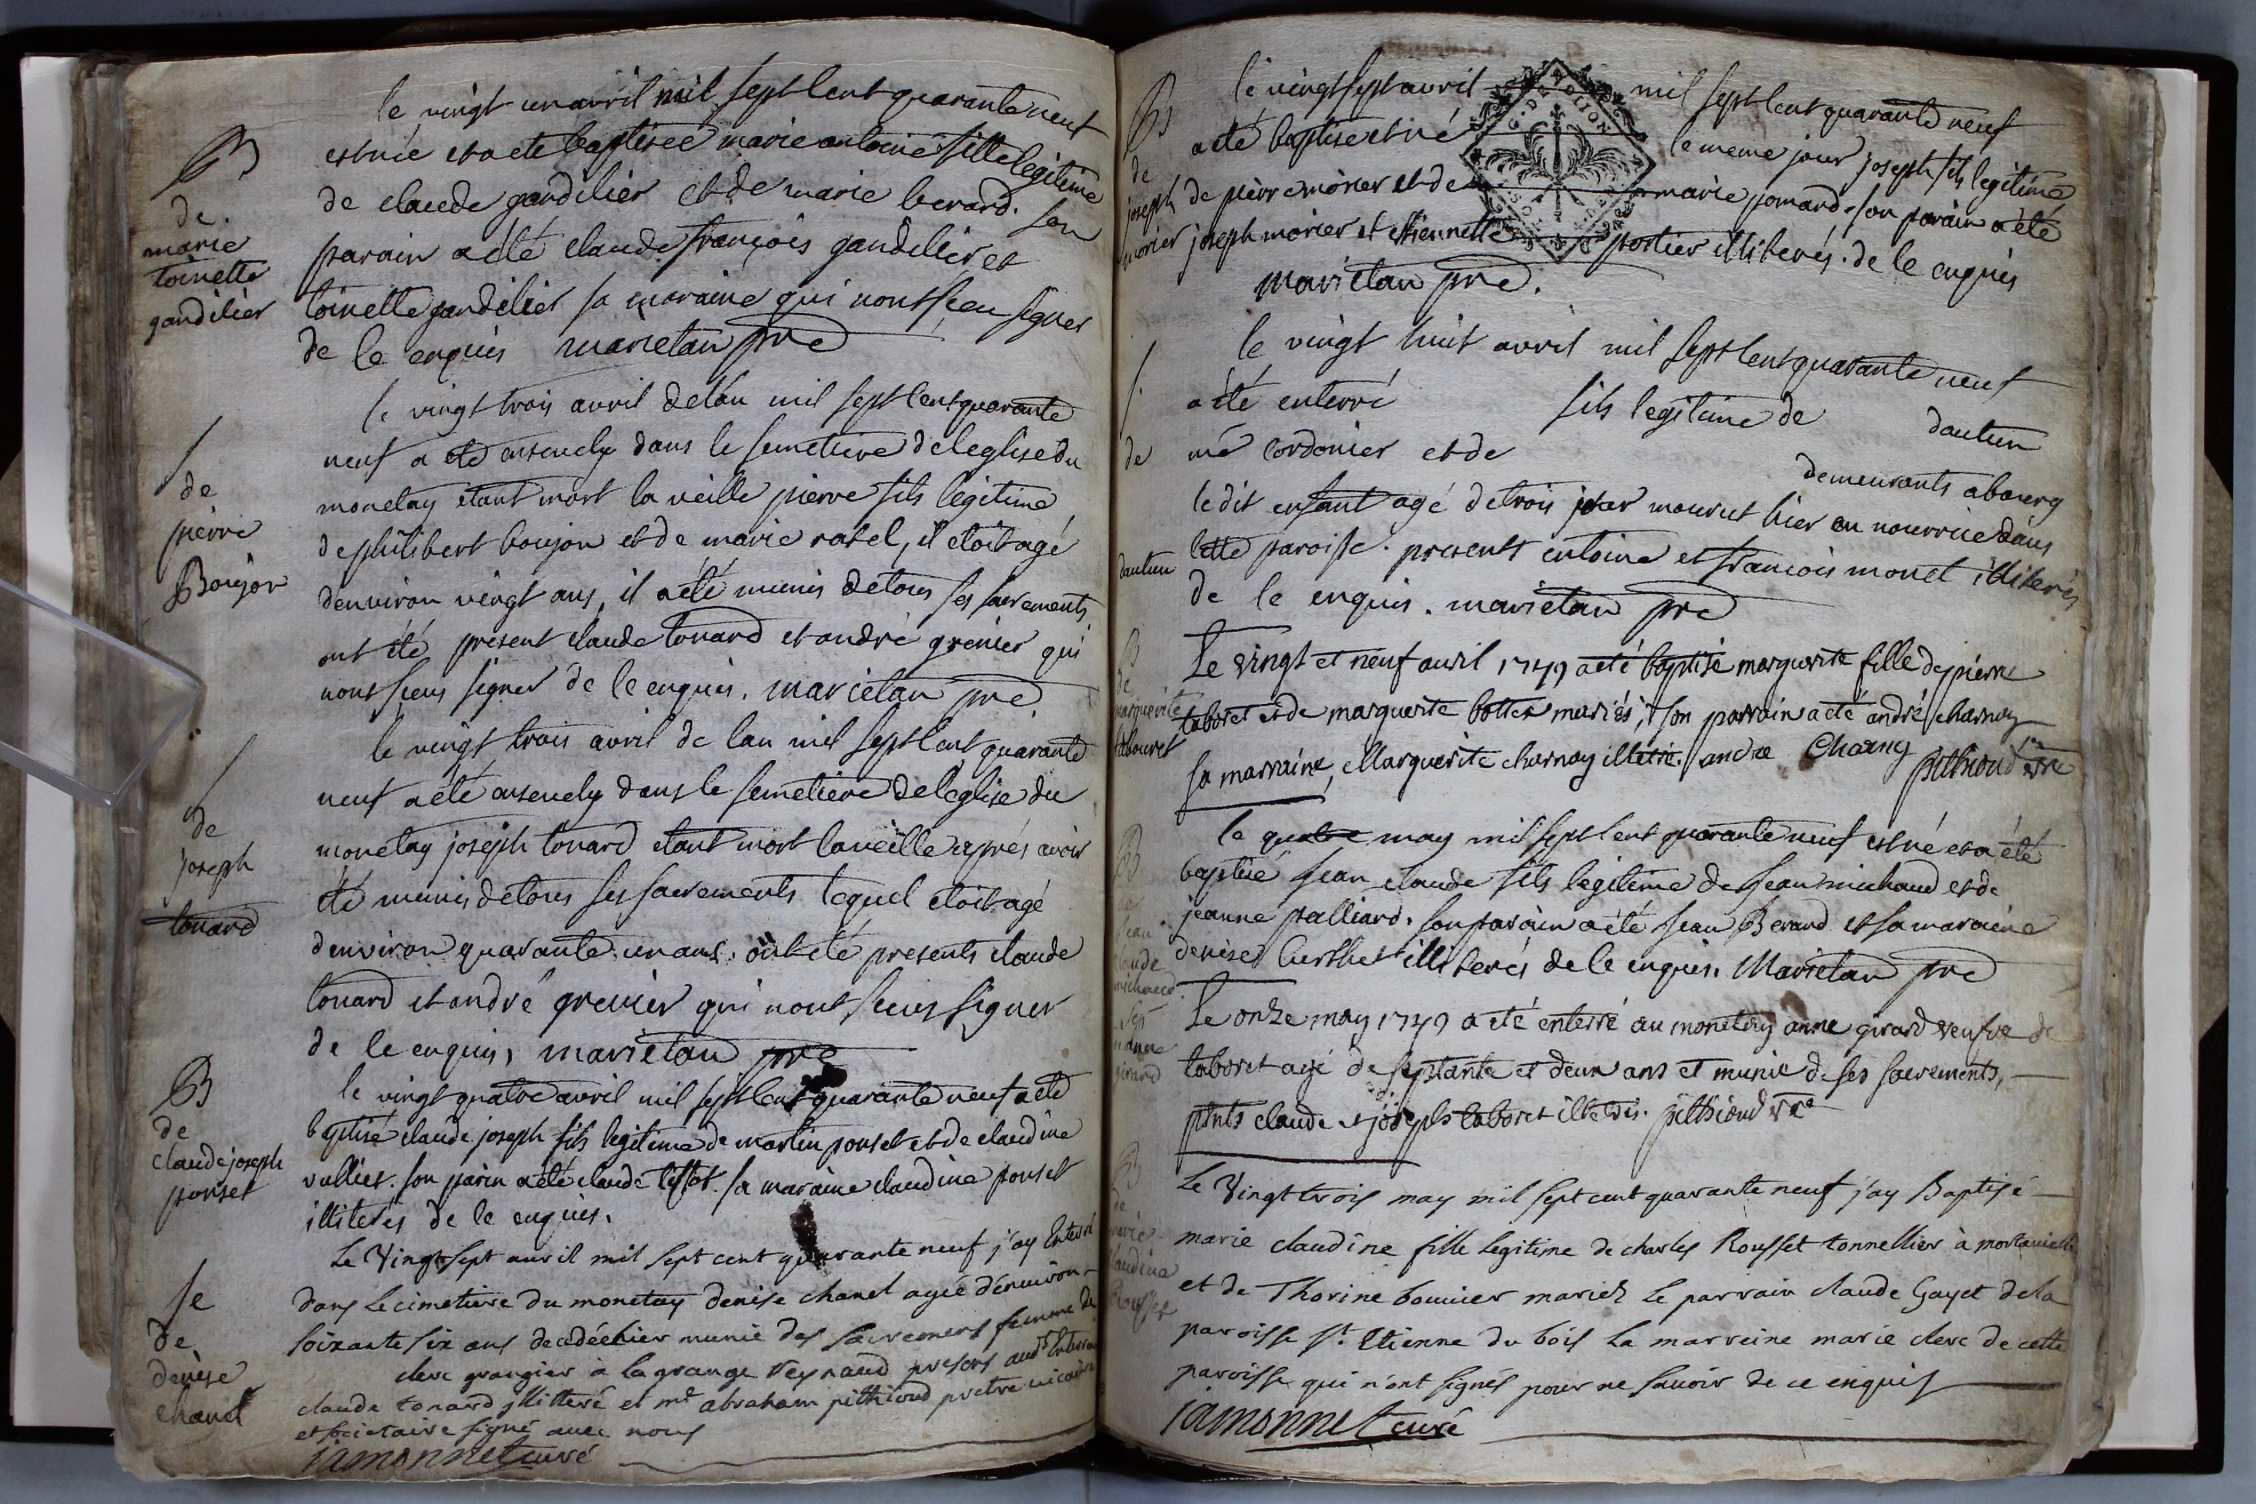 le vingt un avril mil sept cent quarante neuf
B
est née et a eté baptisée marie antoine fille legitime
de
de claude gandilier et de marie berard. son
marie
toinette
gandilier
parain a été claude françois gandilier et
toinette gandilier sa maraine qui nont sceu signer
de ce enquis marietan pre
le vingt trois avril de lan mil sept cent quarante
S
de
pierre
Boujon
neuf a eté ensevely dans le semetiere de leglise du
monetay etant mort la veille pierre fils legitime
de philibert boujon et de marie ratel, il etoit agé
denviron vingt ans, il a été munis de tous ses sacrements
ont été present claude tonard et andré grenier qui
nont sceus signer de ce enquis. marietan pre
le vingt trois avril de lan mil sept cent quarante
S
de
joseph
tonard
neuf a été ensevely dans le semetiere de leglise du
monetay joseph tonard etant mort la veille après avoir
été munis de tous ses sacrements lequel etoit agé
denviron quarante un ans. ont été presents claude
tonard et andré grenier qui nont sceus signer
de ce enquis, marietan pre
le vingt quatre avril mil sept cent quarante neuf a eté
B
de
claude joseph
ponset
baptisé claude joseph fils legitime de martin ponset et de claudine
vullier. son parin a été claude tissot. sa maraine claudine ponset
illiterés de ce enquis.
Le Vingt sept avril mil sept cent quarante neuf j'ay Enterré
Se
de
denise
chanel
dans le cimetiere du monetay denise chanel agée d'environ
soixante six ans decedée hier munie des sacremens femme de
clerc grangier à la grange Reynaud presens aud. Enterrem
claude tonard illitteré et mre abraham pithioud pretre vicaire
et societaire signé avec nous
jamonnet curé
le vingt sept avril mil sept cent quarante neuf
B
de
joseph
morier
a été baptisé et né le meme jour joseph fils legitime
G. DE DIION
de pierre morier et de marie jomard. son parain a été
joseph morier et etiennette portier illiterés. de ce enquis
marietan pre.
le vingt huit avril mil sept cent quarante neuf
S.
de
dautun
a été enterré fils legitime de dautun
mé cordonier et de demeurants a bourg
le dit enfant agé de trois jour mourut hier en nourrice dans
cette paroisse. presents entoine et francois monet illiterés
de ce enquis. marietan pre
B
de
marguerite
tabouret
Le vingt et neuf avril 1749 a eté baptisé marguerite fille de pierre
taboret et de marguerite bottex mariés, son parrain a eté andré charnay
sa marraine, Marguerite charnay illetré. andre Charny pithioud vre
le quatre may mil sept cent quarante neuf est né et a été
B
de
jean
claude
michaud
baptisé jean claude fils legitime de jean michaud et de
jeanne palliard. son parain a été jean Berard et sa maraine
denise berthet illiterés de ce enquis. Marietan pre
Le onze may 1749 a eté enterré au monetay anne girard veufve de
Sep
d'anne
girard
taboret agé de septante et deux ans et munie de ses sacrements,
pnts claude et joseph taboret illetrés. pithioud vre
B
de
marie
claudine
Rousset
Le Vingt trois may mil sept cent quarante neuf j'ay Baptisé
marie claudine fille legitime de charles Rousset tonnellier à mortavielle
et de Thorine bouvier mariez le parrain claude Gayet de la
paroisse St. Etienne du bois la marreine marie clerc de cette
paroisse qui n'ont signés pour ne savoir de ce enquis
jamonnet curé